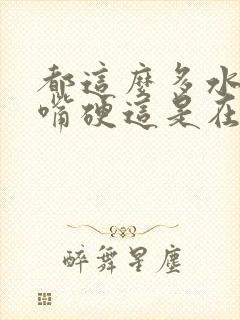 都這麼多水
嘴硬這是在
醉舞星塵